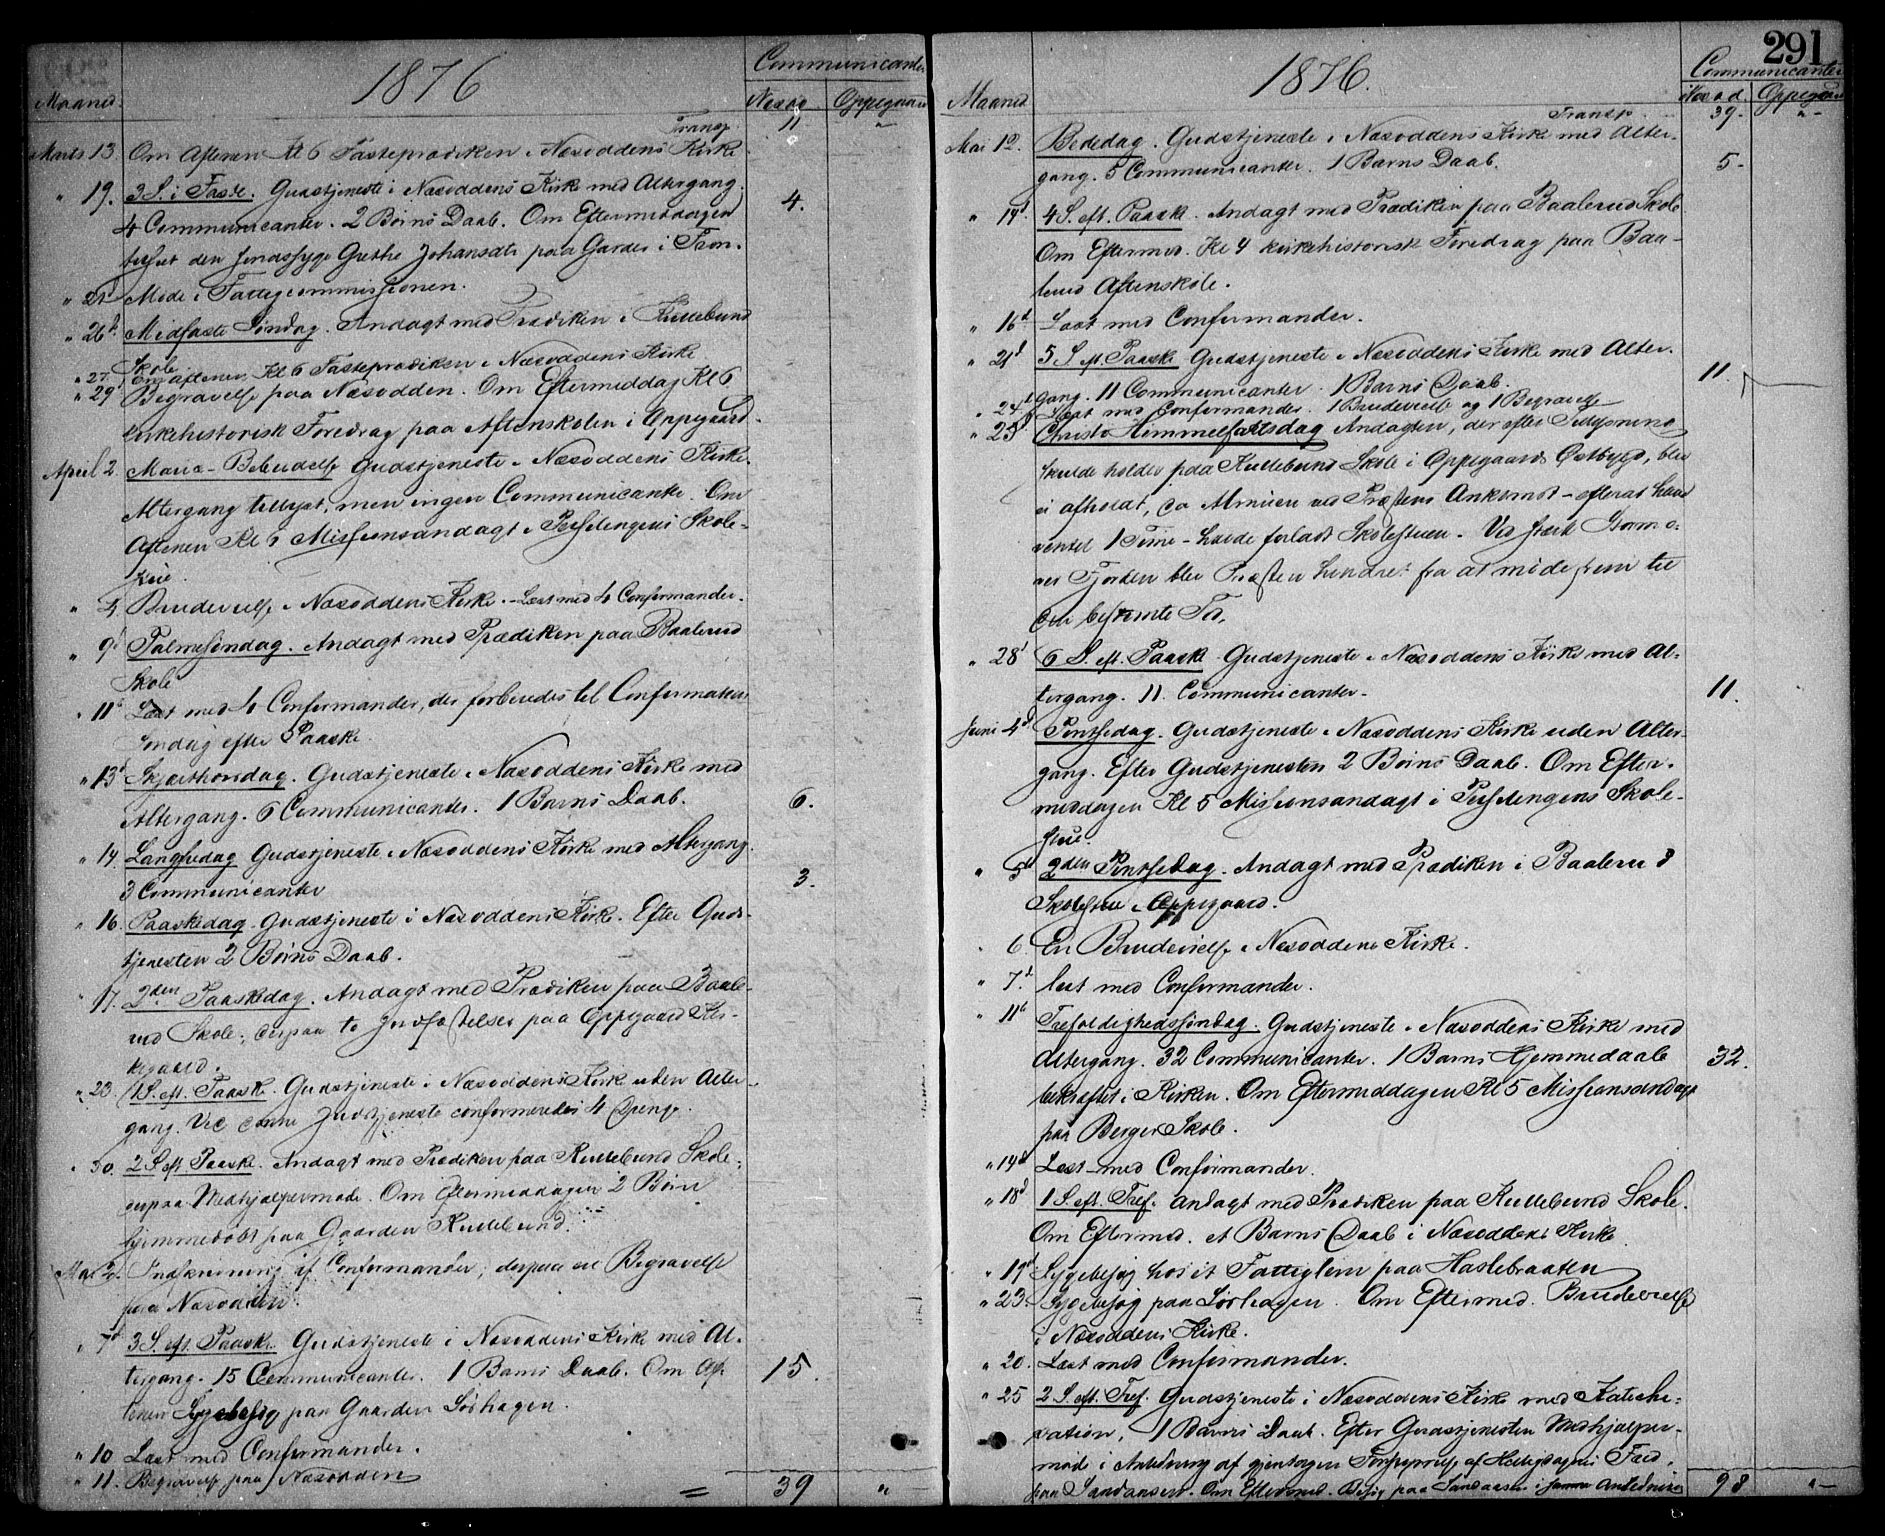 1876
Communicanter
Maaned.
Nesod
Oppegaard
Transp. 11 "
Marts 13. Om Aftenen Kl 6 Fasteprædiken i Næsoddens Kirke
" 19. 3 S. i Faste. Gudstjeneste i Næsoddens Kirke med Altergang.
4 Communicanter. 2 Børns Daab. Om Eftermiddagen 4.
besøgt den sindssyge Grethe Johansdtr paa Garder i Fron.
" 21 Møde i Fattigcommissionen.
" 26d. Midfaste Søndag. Andagt med Prædiken i Kullebund
Skole
" 27. Om Aftenen Kl 6 Fasteprædiken i Næsoddens Kirke
" 29 Begravelse paa Næsodden. Om Eftermiddag Kl 6
kirkehistorisk Foredrag paa Aftenskolen i Oppegaard.
April 2. Maria-Bebudelse Gudstjeneste i Næsoddens Kirke.
Altergang tillyst, men ingen Communicanter. Om
Aftenen Kl 6 Missionsandagt i Teisselengens Skole-
stue.
" 4 Brudevielse i Næsoddens Kirke. - Læst med 4 Confirmander.
" 9d Palmesøndag. Andagt med Prædiken paa Baalerud
Skole
" 11d Læst med 4 Confirmander, der forberedes til Confirmation
Søndag efter Paaske.
" 13d Skjærthorsdag. Gudstjeneste i Næsoddens Kirke med
Altergang. 6 Communicanter. 1 Barns Daab. 6.
" 14. Langfredag Gudstjeneste i Næsoddens Kirke med Altergang.
3 Communicanter 3.
" 16. Paaskedag. Gudstjeneste i Næsoddens Kirke. Efter Guds-
tjenesten 2 Børns Daab.
" 17. 2den Paaskedag. Andagt med Prædiken paa Baale-
rud Skole; derpaa to Jordfæstelser paa Oppegaard Kir-
kegaard.
" 23. 1 S. eft. Paaske. Gudstjeneste i Næsoddens Kirke uden Alter-
gang. Ved denne Gudstjeneste confirmeredes 4 Drenge.
" 30. 2 S. eft. Paaske. Andagt med Prædiken paa Kullebund Skole;
derpaa Medhjælpermøde. Om Eftermiddagen 2 Børn
hjemmedøbt paa Gaarden Kullebund.
Mai 2. Indskrivning af Confirmander; derpaa en Begravelse
paa Næsodden.
" 7d 3 S. eft. Paaske. Gudstjeneste i Næsoddens Kirke med Al-
tergang. 15 Communicanter. 1 Barns Daab. Om Af- 15.
tenen Sygebesøg paa Gaarden Sørhagen.
" 10 Læst med Confirmander.
" 11. Begravelse paa Næsodden
= 39 "
291
1876.
Communicanter
Maaned
Nesod.
Oppegaard
Transp. 39. "
Mai 12. Bededag. Gudstjeneste i Næsoddens Kirke med Alter-
gang. 5 Communicanter. 1 Barns Daab. 5.
" 14d 4 S. eft. Paaske. Andagt med Prædiken paa Baalerud Skole
Om Eftermid. Kl 4 kirkehistorisk Foredrag paa Baa-
lerud Aftenskole.
" 16d Læst med Confirmander.
" 21d 5 S. eft. Paaske Gudstjeneste i Næsoddens Kirke med Alter.
gang. 11 Communicanter. 1 Barns Daab. 11.
" 24d Læst med Confirmander. 1 Brudevielse og 1 Begravelse
" 25d Christi Himmelfartsdag Andagten, der efter Tillysning
skulde holdes paa Kullebund Skole i Oppegaards Østbygd, blev
ei afholdt, da Almuen ved Præstens Ankomst - efterat have
ventet 1 Time - havde forladt Skolestuen. Ved stærk Storm o-
ver Fjorden blev Præsten hindret fra at møde frem til
den bestemte Tid.
" 28d 6 S. eft. Paaske Gudstjeneste i Næsoddens Kirke med Al-
tergang. 11. Communicanter. 11.
Juni 4d Pintsedag. Gudstjeneste i Næsoddens Kirke uden Alter-
gang. Efter Gudstjenesten 2 Børns Daab. Om Efter-
middagen Kl 5 Missionsandagt i Teisselengens Skole-
stue.
" 5d 2den Pintsedag. Andagt med Prædiken i Baalerud
Skolestue i Oppegaard.
" 6 En Brudevielse i Næsoddens Kirke.
" 7d. læst med Confirmander.
" 11d Trefoldighedssøndag. Gudstjeneste i Næsoddens Kirke med
Altergang. 32 Communicanter. 1 Barns Hjemmedaab 32.
bekræftet i Kirken. Om Eftermiddagen Kl 5 Missionsandagt
paa Berger Skole.
" 14d Læst med Confirmander.
" 18d 1 S. eft. Tref. Andagt med Prædiken paa Kullebund Skole.
Om Eftermid. et Barns Daab i Næsoddens Kirke
" 19d Sygebesøg hos et Fattiglem paa Haslebraaten
" 23. Sygebesøg paa Sørhagen. Om Eftermid. Brudevielse
i Næsoddens Kirke.
" 20. Læst med Confirmander.
" 25 2 S. eft. Tref. Gudstjeneste i Næsoddens Kirke med Kateche-
sation. 1 Barns Daab. Efter Gudstjenesten Medhjælper-
møde i Anledning af gjentagen Forstyrrelse af Helligdagens Fred
paa Sandaasen. Om Eftermid. Besøg paa Sandaasen i samme Anledning 98 "